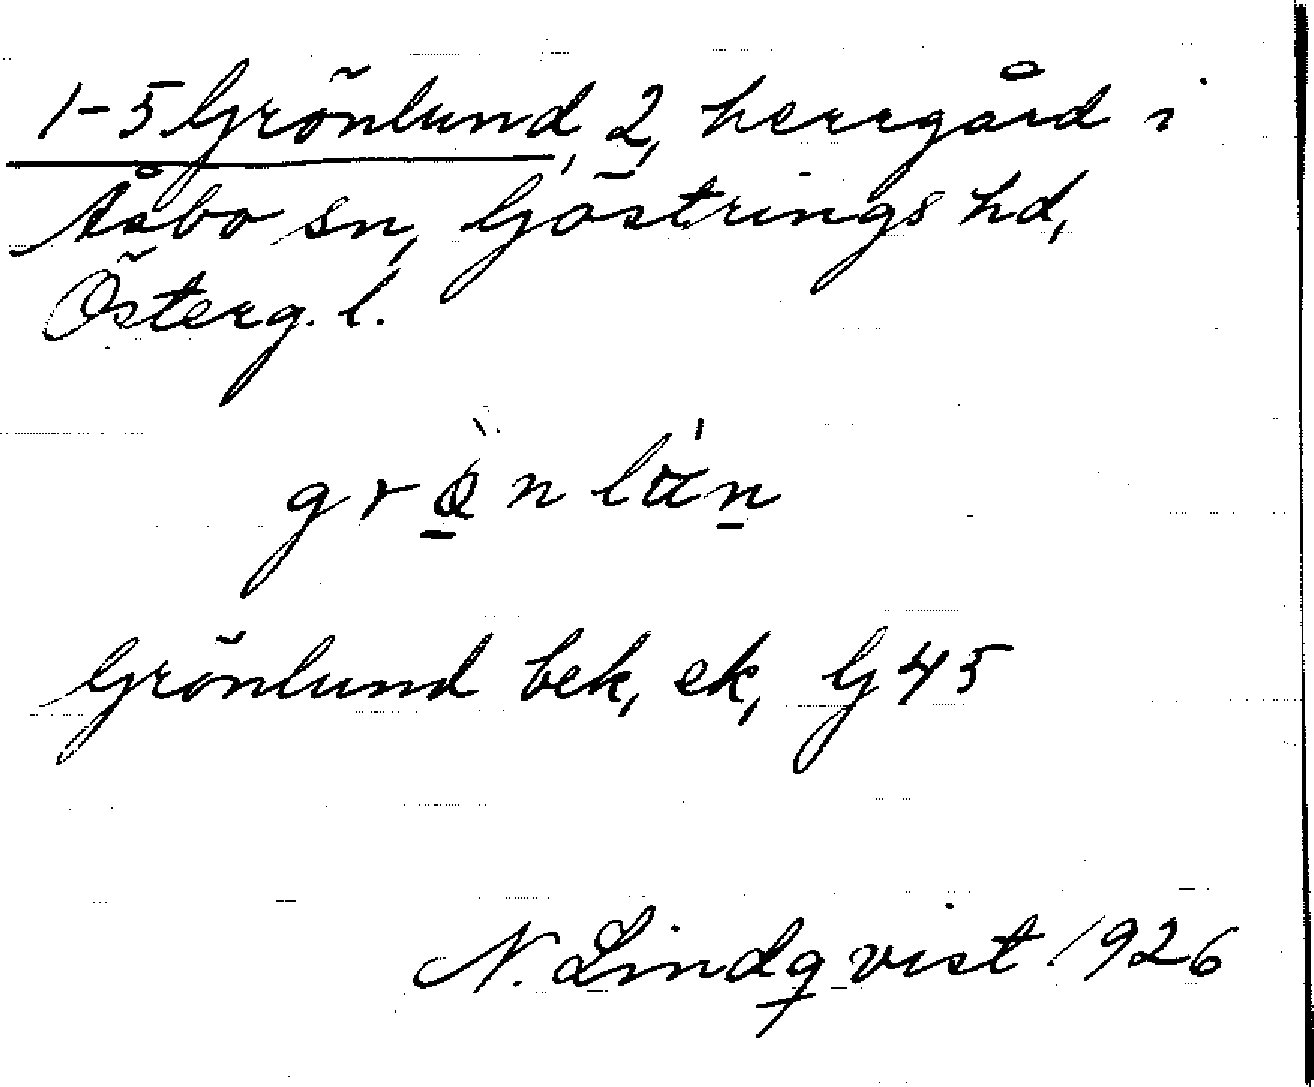 1-5 Grönlund, 2, herrgård i
Åsbo sn, Göstrings hd,
Österg. l.
Grönlund bek, ek, G45
N. Lindqvist 1926